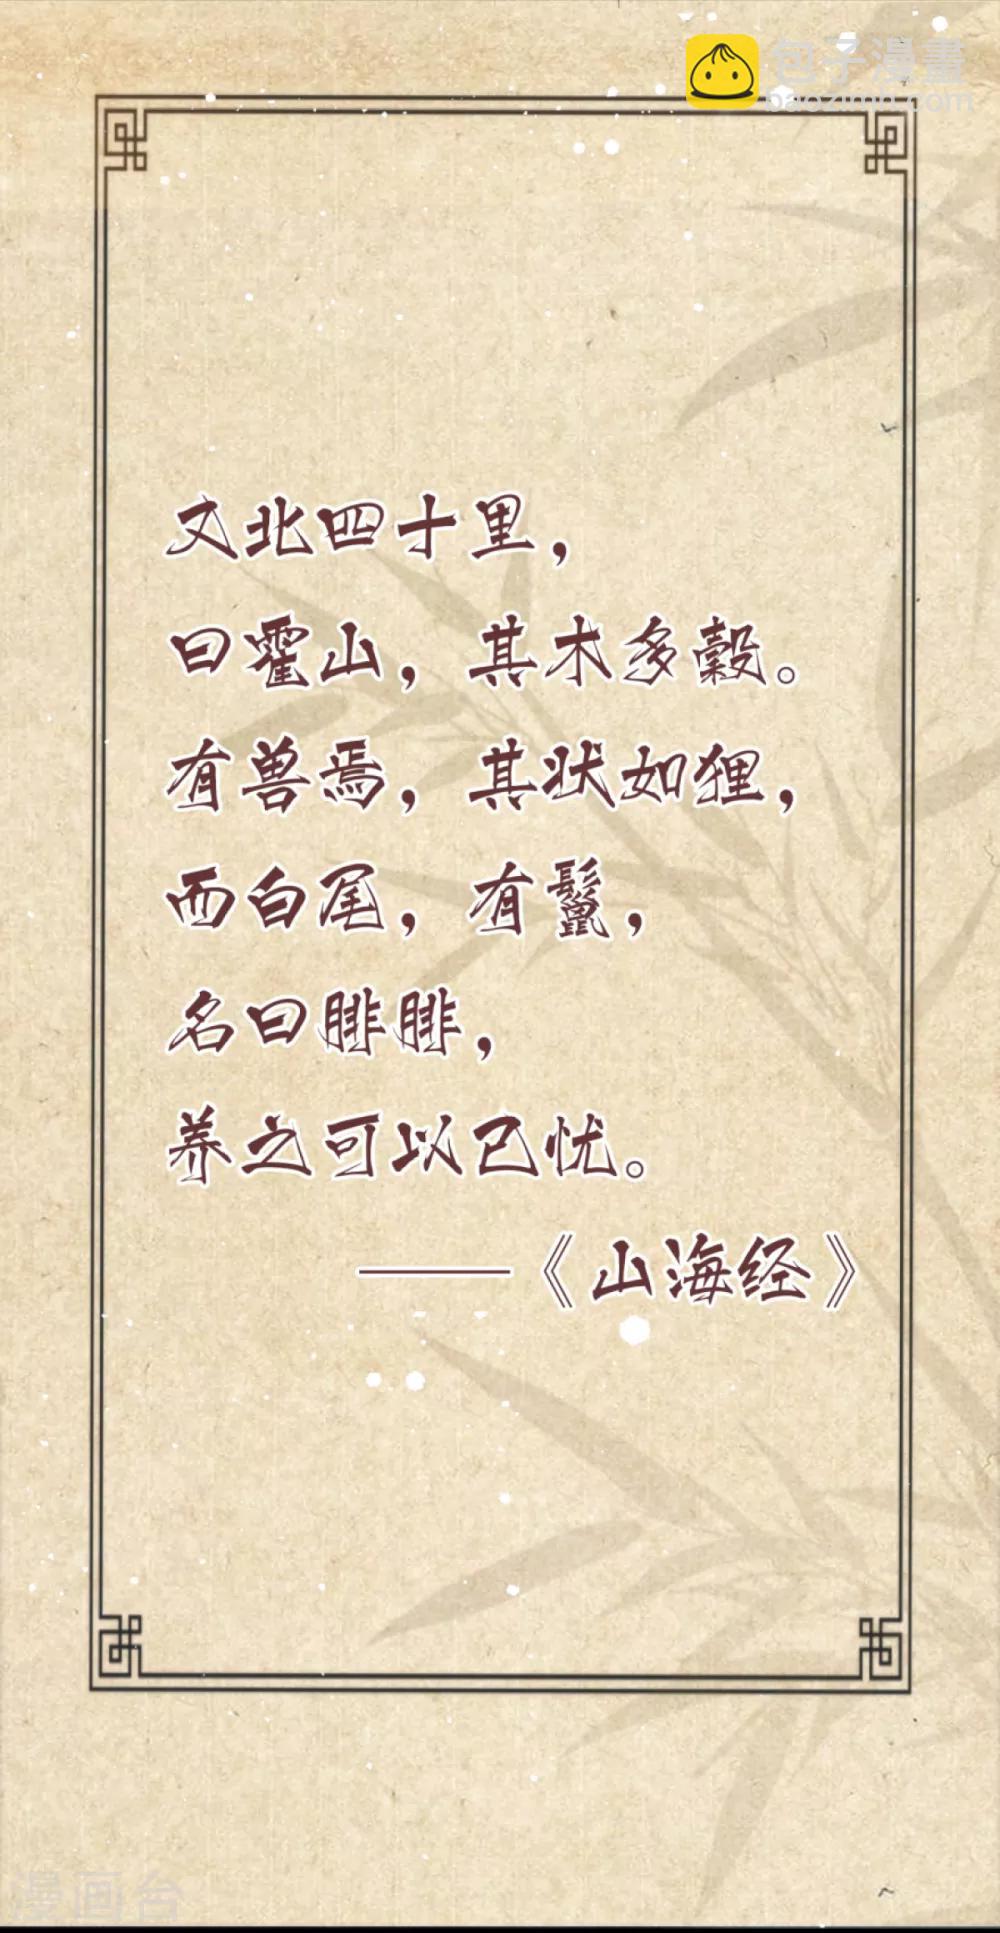 包子漫畫
baozimh.com
又北四十里，
曰霍山，其木多榖。
有兽焉，其状如狸，
而白尾，有鬣，
名曰腓腓，
养之可以已忧。
——《山海经》
漫画台